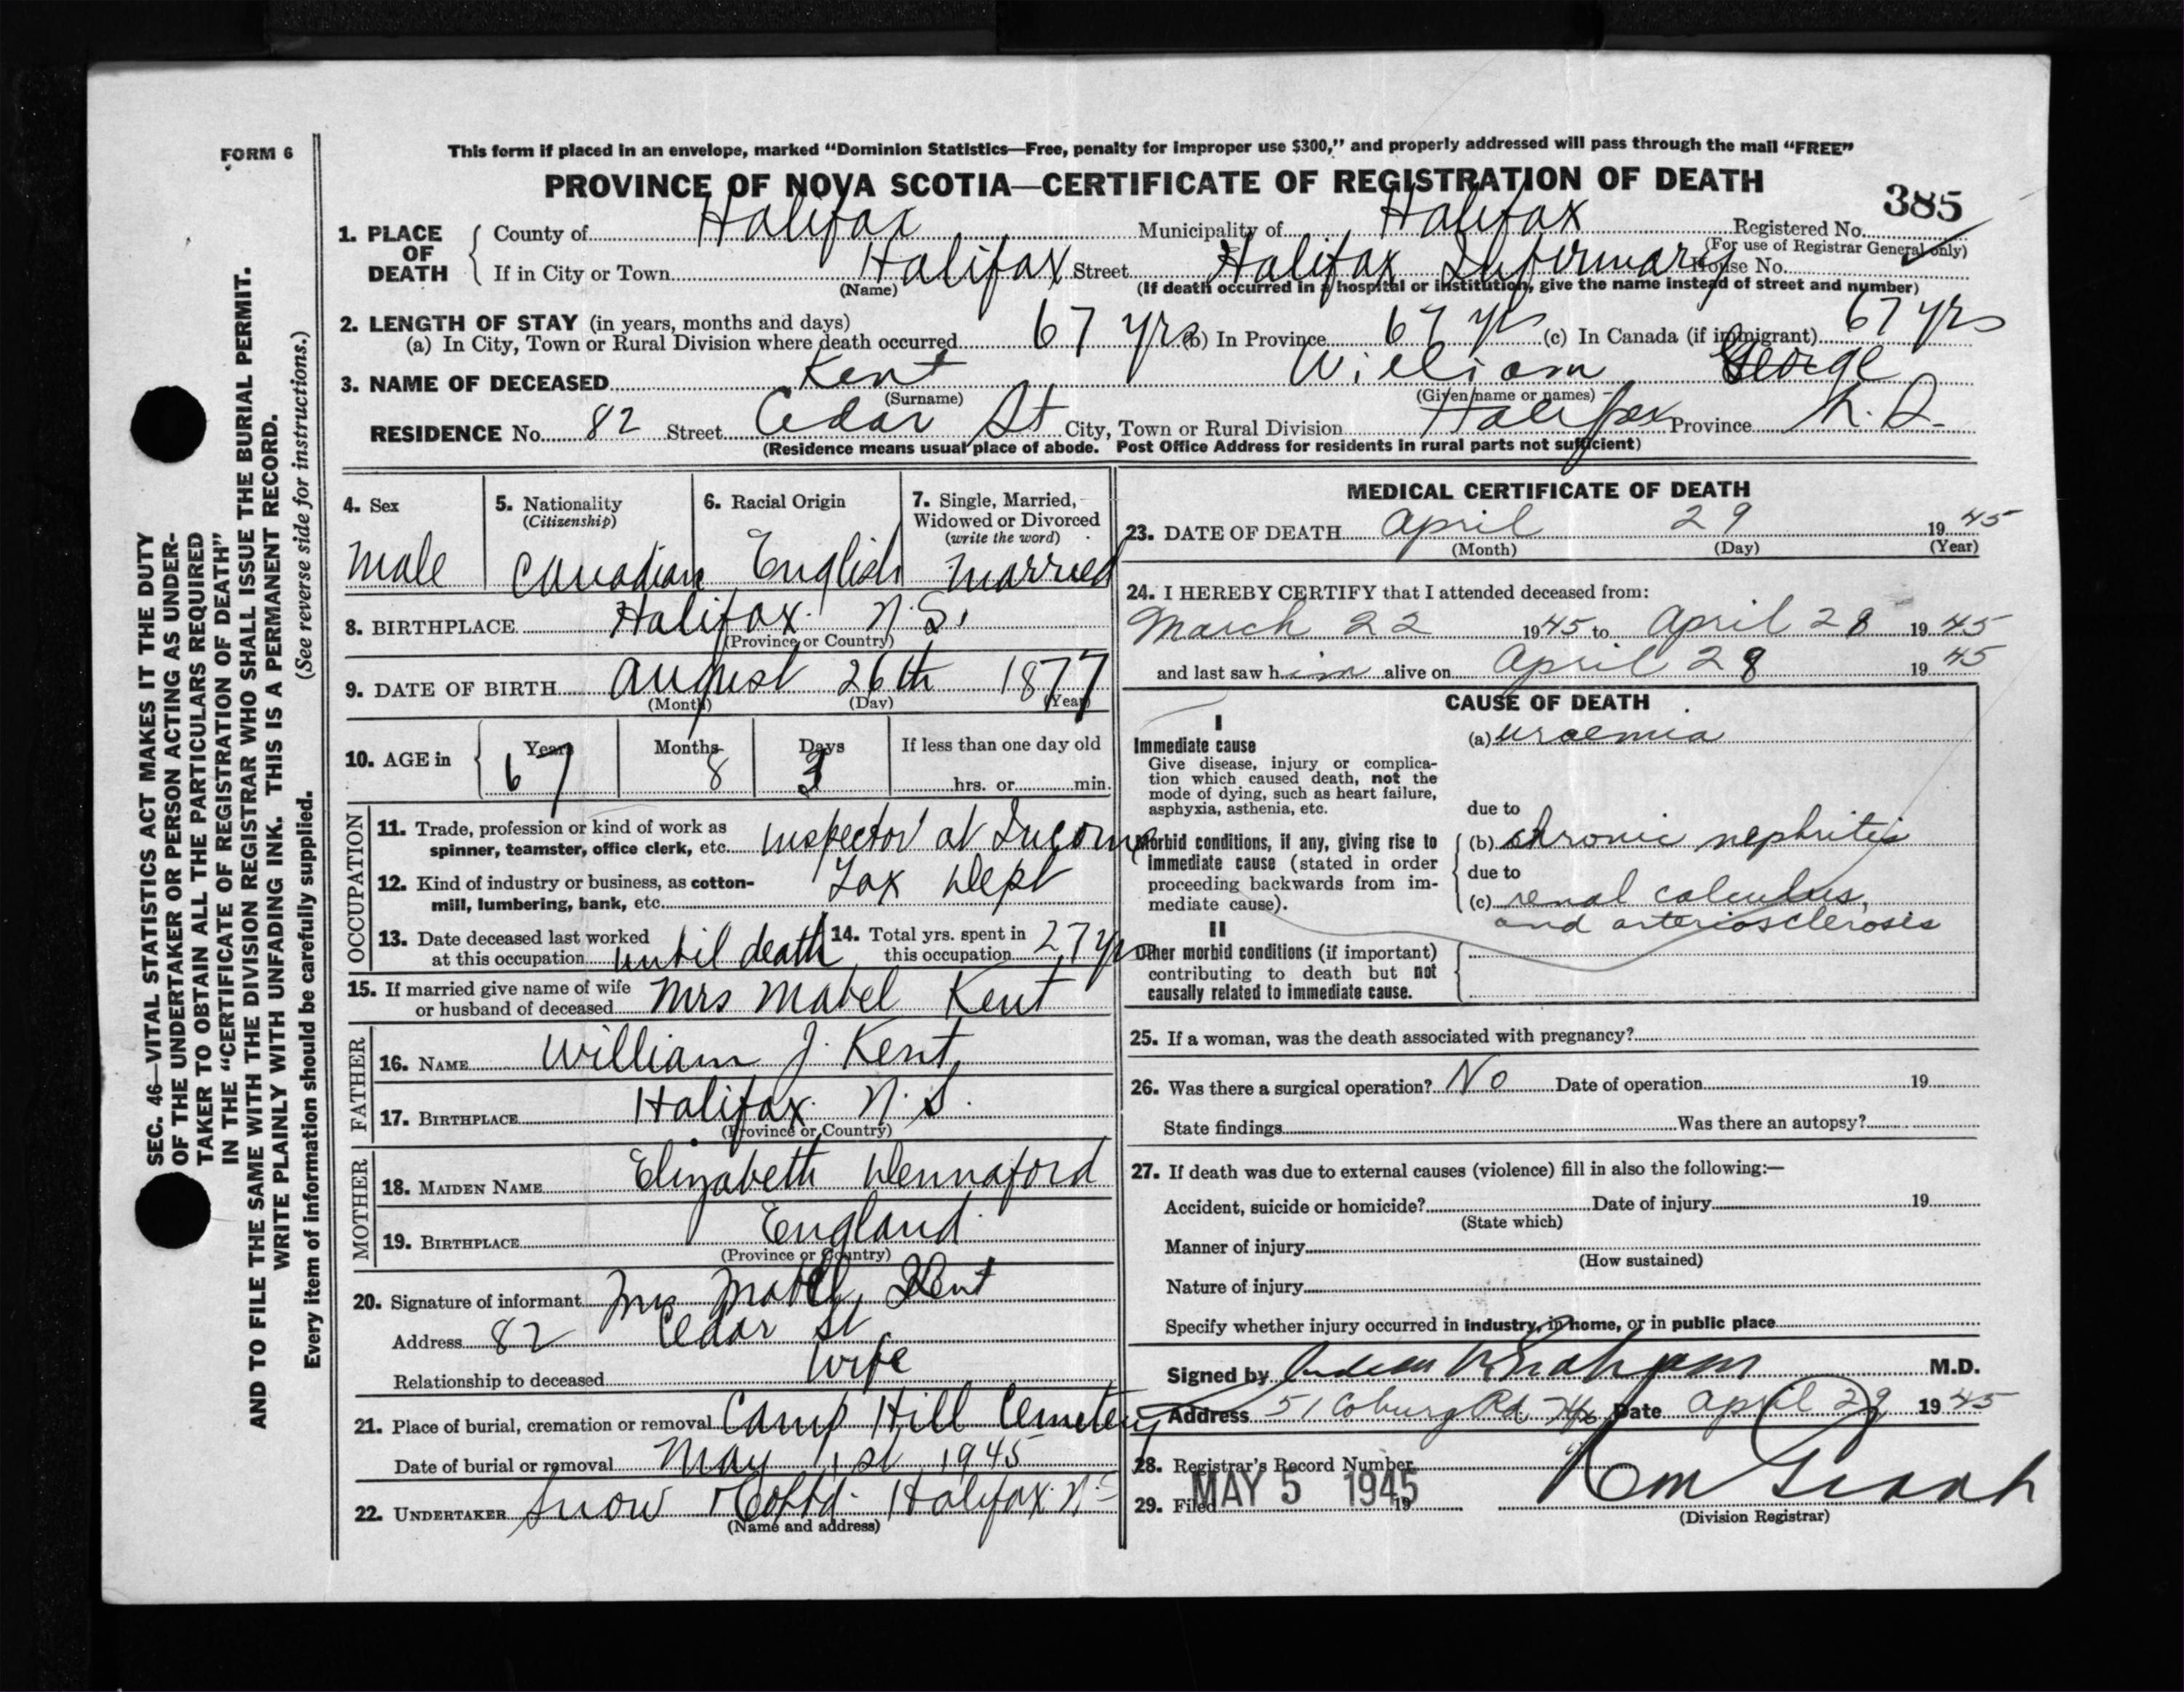 FORM 6
This form if placed in an envelope, marked "Dominion Statistics—Free, penalty for improper use $300," and properly addressed will pass through the mail "FREE"
PROVINCE OF NOVA SCOTIA—CERTIFICATE OF REGISTRATION OF DEATH
385
1. PLACE OF DEATH
County of Halifax Municipality of Halifax Registered No.
(For use of Registrar General only)
If in City or Town Halifax Street Halifax Infirmary House No.
(Name) (If death occurred in a hospital or institution, give the name instead of street and number)
2. LENGTH OF STAY (in years, months and days)
(a) In City, Town or Rural Division where death occurred 67 yrs (b) In Province 67 yrs (c) In Canada (if immigrant) 67 yrs
3. NAME OF DECEASED Kent William George
(Surname) (Given name or names)
RESIDENCE No. 82 Street Cedar St City, Town or Rural Division Halifax Province N.S.
(Residence means usual place of abode. Post Office Address for residents in rural parts not sufficient)
SEC. 46—VITAL STATISTICS ACT MAKES IT THE DUTY
OF THE UNDERTAKER OR PERSON ACTING AS UNDER-
TAKER TO OBTAIN ALL THE PARTICULARS REQUIRED
IN THE "CERTIFICATE OF REGISTRATION OF DEATH"
AND TO FILE THE SAME WITH THE DIVISION REGISTRAR WHO SHALL ISSUE THE BURIAL PERMIT.
WRITE PLAINLY WITH UNFADING INK. THIS IS A PERMANENT RECORD.
Every item of information should be carefully supplied. (See reverse side for instructions.)
4. Sex
Male
5. Nationality
(Citizenship)
Canadian
6. Racial Origin
English
7. Single, Married,
Widowed or Divorced
(write the word)
Married
8. BIRTHPLACE Halifax N.S.
(Province or Country)
9. DATE OF BIRTH August 26th 1877
(Month) (Day) (Year)
10. AGE in Years Months Days If less than one day old
67 8 3 hrs. or min.
OCCUPATION
11. Trade, profession or kind of work as
spinner, teamster, office clerk, etc. Inspector at Income
12. Kind of industry or business, as cotton-
mill, lumbering, bank, etc. Tax Dept
13. Date deceased last worked
at this occupation until death
14. Total yrs. spent in
this occupation 27 yrs
15. If married give name of wife
or husband of deceased Mrs Mabel Kent
FATHER
16. NAME William J. Kent
17. BIRTHPLACE Halifax N.S.
(Province or Country)
MOTHER
18. MAIDEN NAME Elizabeth Dennaford
19. BIRTHPLACE England
(Province or Country)
20. Signature of informant Mrs Mabel Kent
Address 82 Cedar St
Relationship to deceased Wife
21. Place of burial, cremation or removal Camp Hill Cemetery
Date of burial or removal May 1st 1945
22. UNDERTAKER Snow & Co Ltd. Halifax N.S
(Name and address)
MEDICAL CERTIFICATE OF DEATH
23. DATE OF DEATH April 29 1945
(Month) (Day) (Year)
24. I HEREBY CERTIFY that I attended deceased from:
March 22 1945 to April 28 1945
and last saw him alive on April 28 1945
CAUSE OF DEATH
I
Immediate cause
Give disease, injury or complica-
tion which caused death, not the
mode of dying, such as heart failure,
asphyxia, asthenia, etc.
(a) uraemia
due to
Morbid conditions, if any, giving rise to
immediate cause (stated in order
proceeding backwards from im-
mediate cause).
(b) chronic nephritis
due to
(c) renal calculus,
and arteriosclerosis
II
Other morbid conditions (if important)
contributing to death but not
causally related to immediate cause.
25. If a woman, was the death associated with pregnancy?
26. Was there a surgical operation? No Date of operation 19
State findings Was there an autopsy?
27. If death was due to external causes (violence) fill in also the following:—
Accident, suicide or homicide? Date of injury 19
(State which)
Manner of injury
(How sustained)
Nature of injury
Specify whether injury occurred in industry, in home, or in public place
Signed by M.D.
Address 51 Coburg Rd Hfx Date April 29 1945
28. Registrar's Record Number
29. Filed MAY 5 1945 19
(Division Registrar)